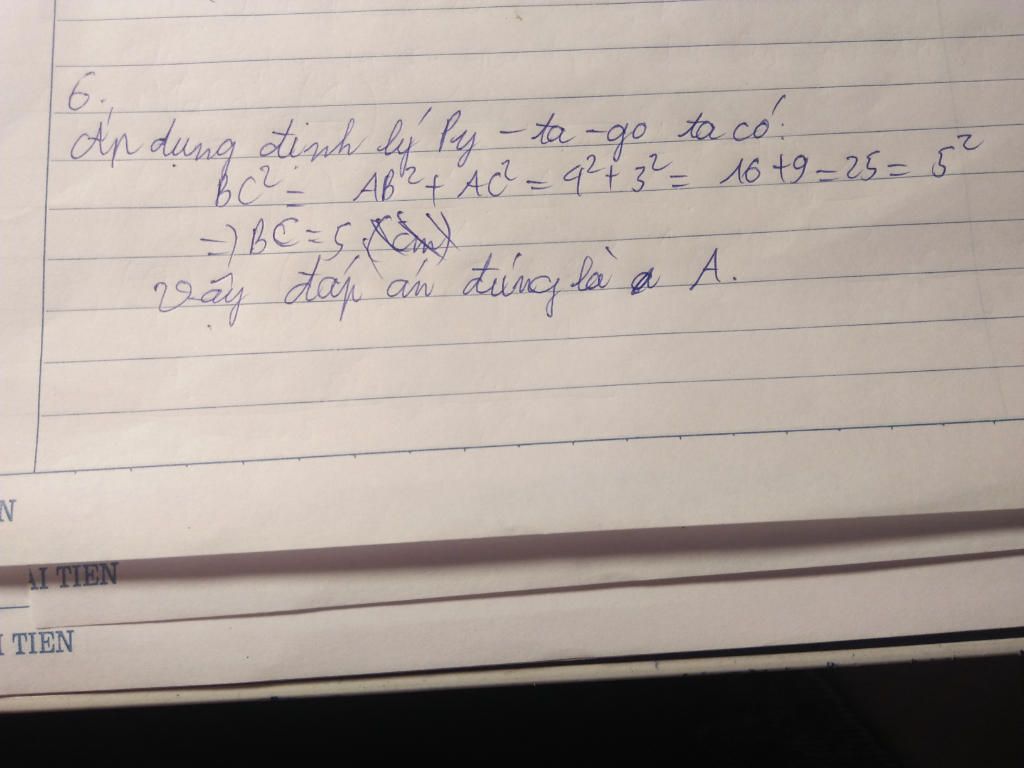 6.
Áp dụng định lý Py-ta-go ta có:
BC² = AB² + AC² = 4² + 3² = 16 + 9 = 25 = 5²
=) BC = 5
vậy đáp án đúng là A.
N
ẢI TIEN
I TIEN